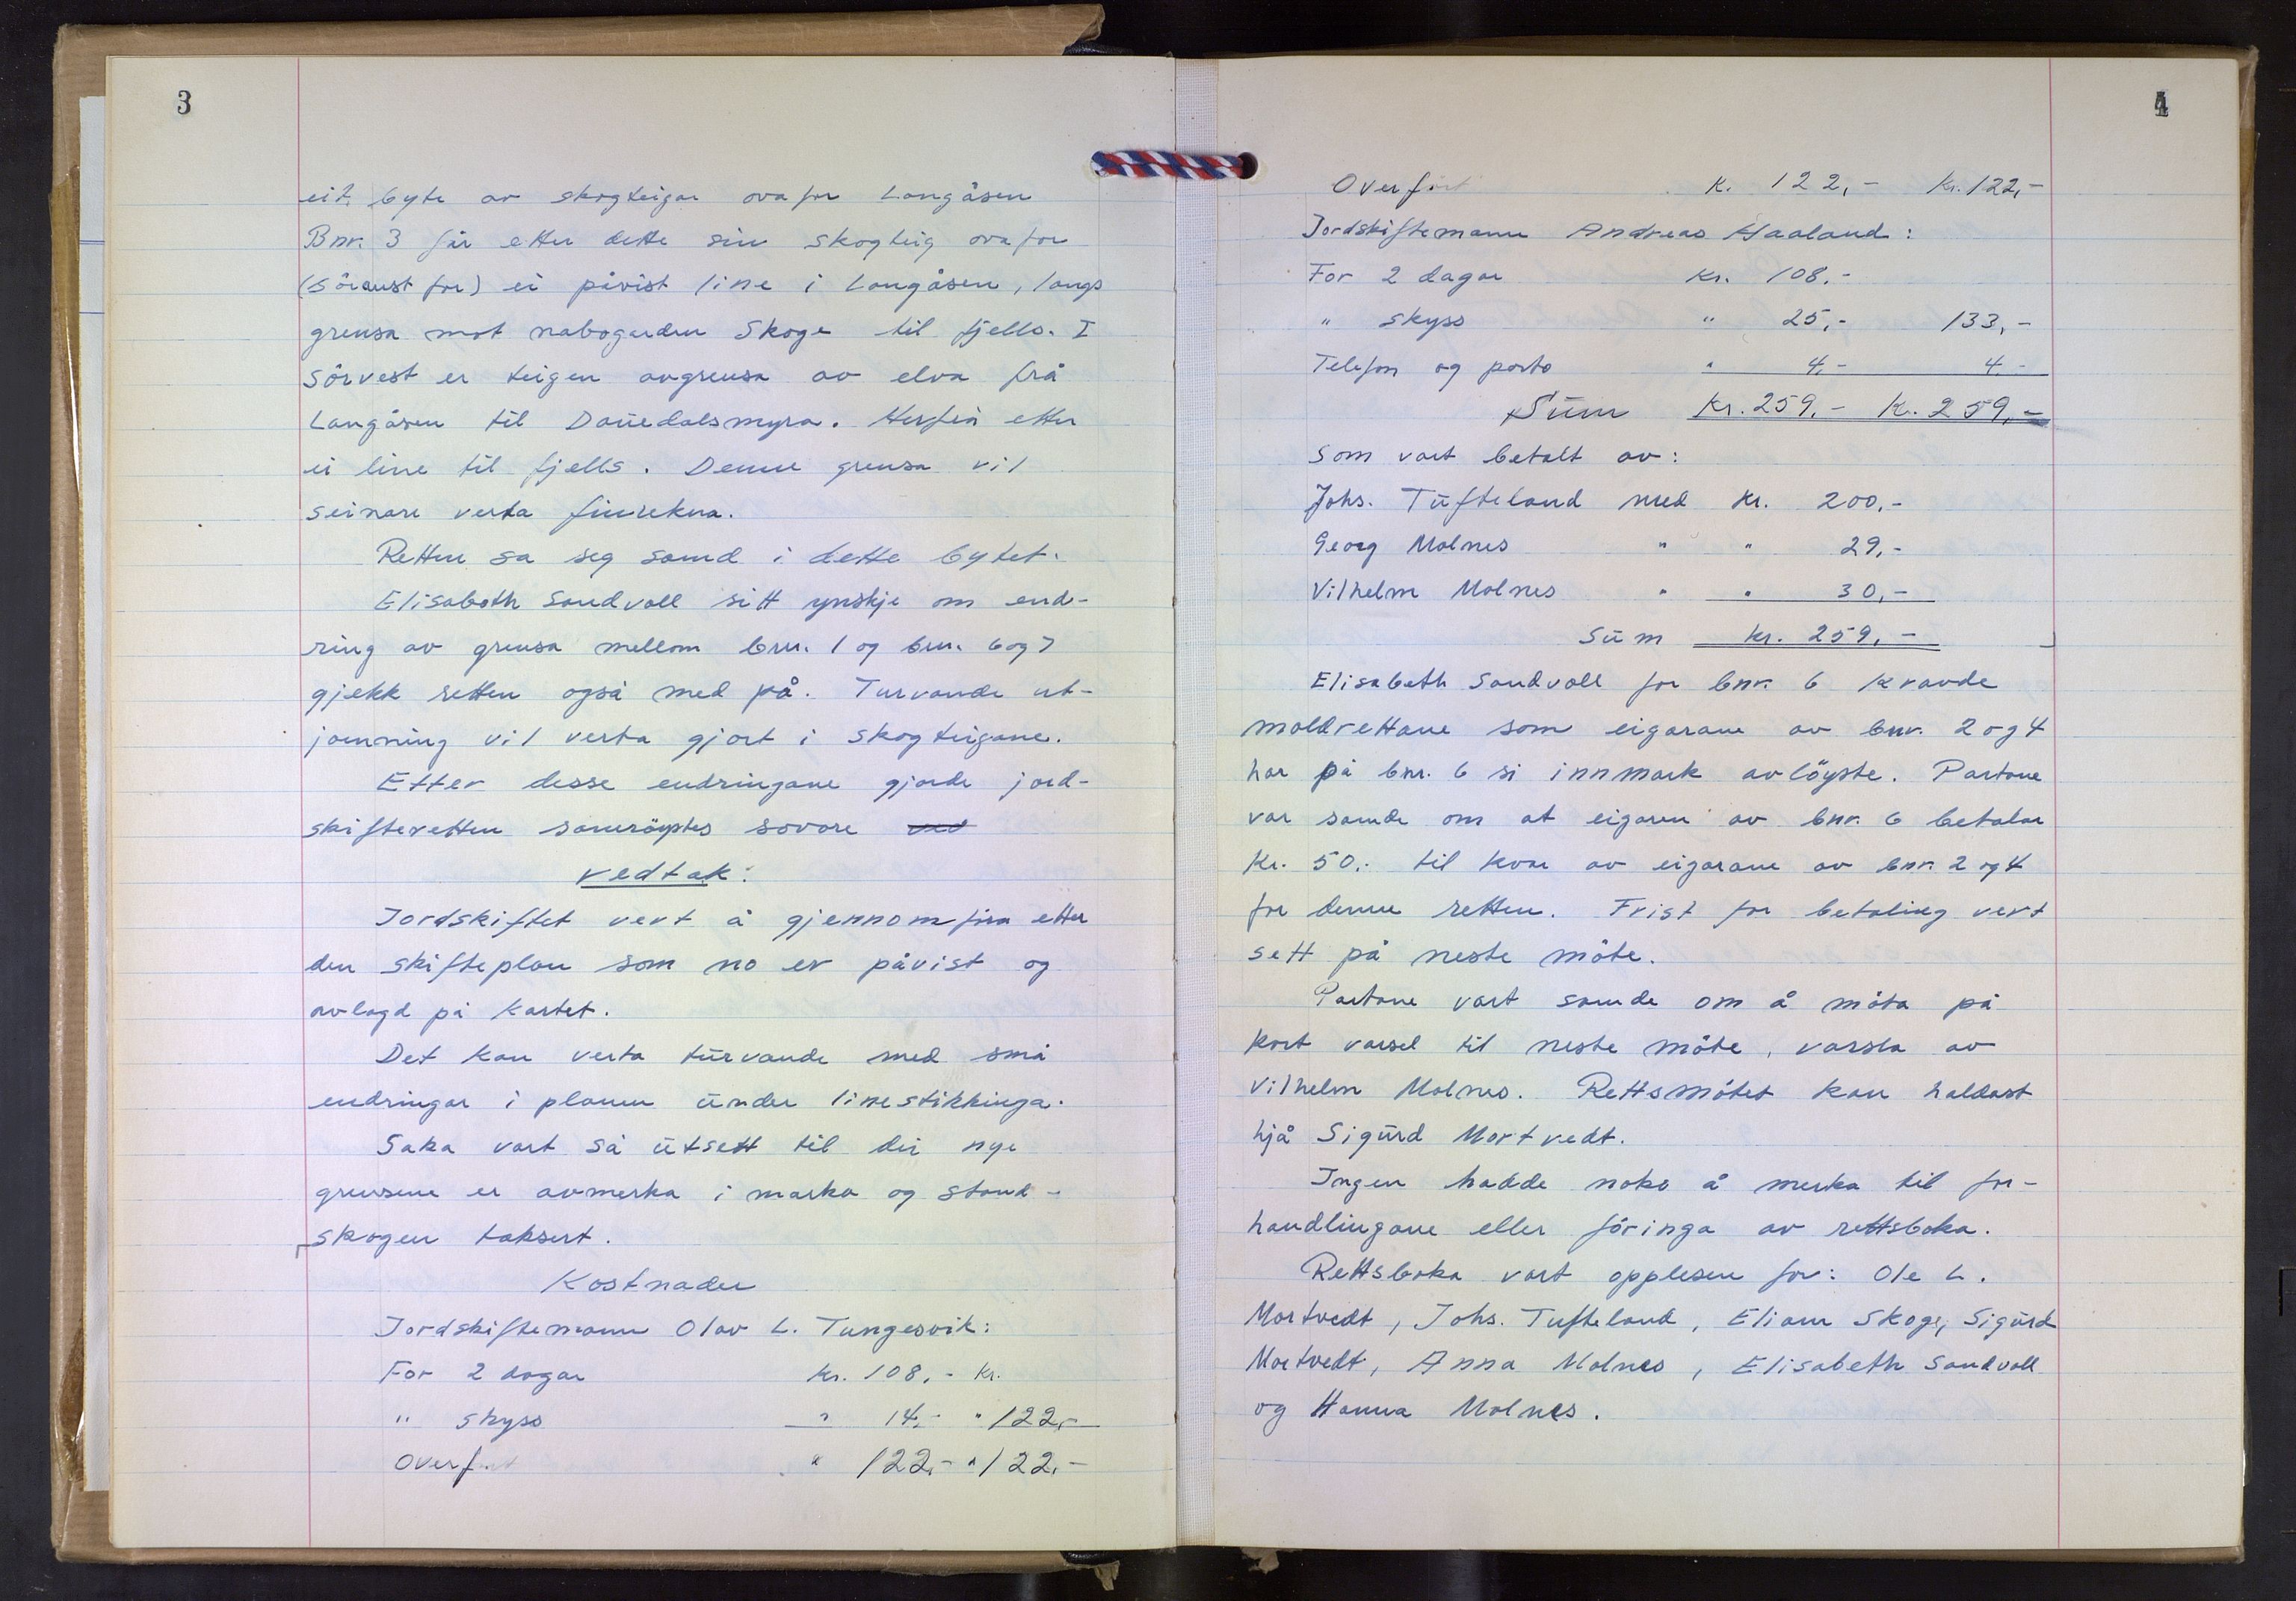 3
eit byte av skogteigar ovafor Langåsen
Bnr. 3 får etter dette sin skogteig ovafor
(söraust for) ei påvist line i Langåsen, langs
grensa mot nabogarden Skoge til fjells. I
Sörvest er teigen avgrensa av elva frå
Langåsen til Dauedalsmyra. Herfrå etter
ei line til fjells. Denne grensa vil
seinare verta finrekna.
Retten sa seg samd i dette bytet.
Elisabeth Sandvoll sitt ynskje om end-
ring av grensa mellom bnr. 1 og bnr. 6 og 7
gjekk retten også med på. Turvande ut-
jamning vil verta gjort i skogteigane.
Etter desse endringane gjorde jord-
skifteretten samröystes sovore
vedtak:
Jordskiftet vert å gjennomföra etter
den skifteplan som no er påvist og
avlagd på kartet.
Det kan verta turvande med små
endringar i planen under linestikkinga.
Saka vart så utsett til dei nye
grensene er avmerka i marka og stand-
skogen taksert.
Kostnader
Jordskiftemann Olav L. Tungesvik:
For 2 dagar kr. 108,- kr.
" skyss " 14,- " 122,-
Overfört " 122,- " 122,-
4
Overfört K. 122,- Kr. 122,-
Jordskiftemann Andreas Haaland:
For 2 dagar Kr. 108,-
" skyss " 25,- 133,-
Telefon og porto " 4,- 4,-
Sum Kr. 259,- K. 259,-
Som vart betalt av:
Johs. Tufteland med Kr. 200,-
Georg Molnes " " 29,-
Vilhelm Molnes " " 30,-
Sum kr. 259,-
Elisabeth Sandvoll for bnr. 6 kravde
moldrettane som eigarane av bnr. 2 og 4
har på bnr. 6 si innmark avlöyste. Partane
var samde om at eigaren av bnr. 6 betalar
Kr. 50,- til kvar av eigarane av bnr. 2 og 4
for denne retten. Frist for betaling vert
sett på neste möte.
Partane vart samde om å möta på
kort varsel til neste möte, varsla av
Vilhelm Molnes. Rettsmötet kan haldast
hjå Sigurd Mortvedt.
Ingen hadde noko å merka til for-
handlingane eller föringa av rettsboka.
Rettsboka vart opplesen for: Ole L.
Mortvedt, Johs. Tufteland, Eliam Skoge, Sigurd
Mortvedt, Anna Molnes, Elisabeth Sandvoll
og Hanna Molnes.